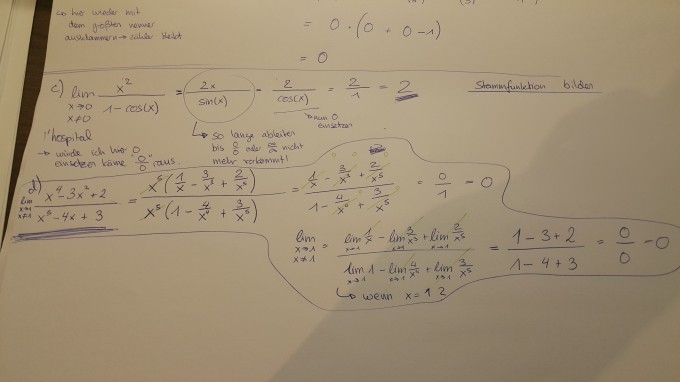 co hie wieder mit
dem größten nenner
ausklammern → zähler bleibt
= 0 · (0 + 0 - 1)
= 0
c) lim x→0 x≠0 x² / 1 - cos(x) = 2x / sin(x) = 2 / cos(x) = 2 / 1 = 2
Stammfunktion bilden
↳ nun 0
einsetzen
l'hospital
→ würde ich hier 0
einsetzen käme "0/0" raus.
↳ so lange ableiten
bis 0/0 oder ∞/∞ nicht
mehr vorkommt!
d) lim x→1 x≠1 x⁴ - 3x² + 2 / x⁵ - 4x + 3 = x⁵ (1/x - 3/x³ + 2/x⁵) / x⁵ (1 - 4/x⁴ + 3/x⁵) = 1/x - 3/x³ + 2/x⁵ / 1 - 4/x⁴ + 3/x⁵ = 0/1 = 0
lim x→1 x≠1 = lim x→1 1/x - lim x→1 3/x³ + lim x→1 2/x⁵ / lim x→1 1 - lim x→1 4/x⁴ + lim x→1 3/x⁵ = 1 - 3 + 2 / 1 - 4 + 3 = 0/0 = 0
↳ wenn x = 1 ?